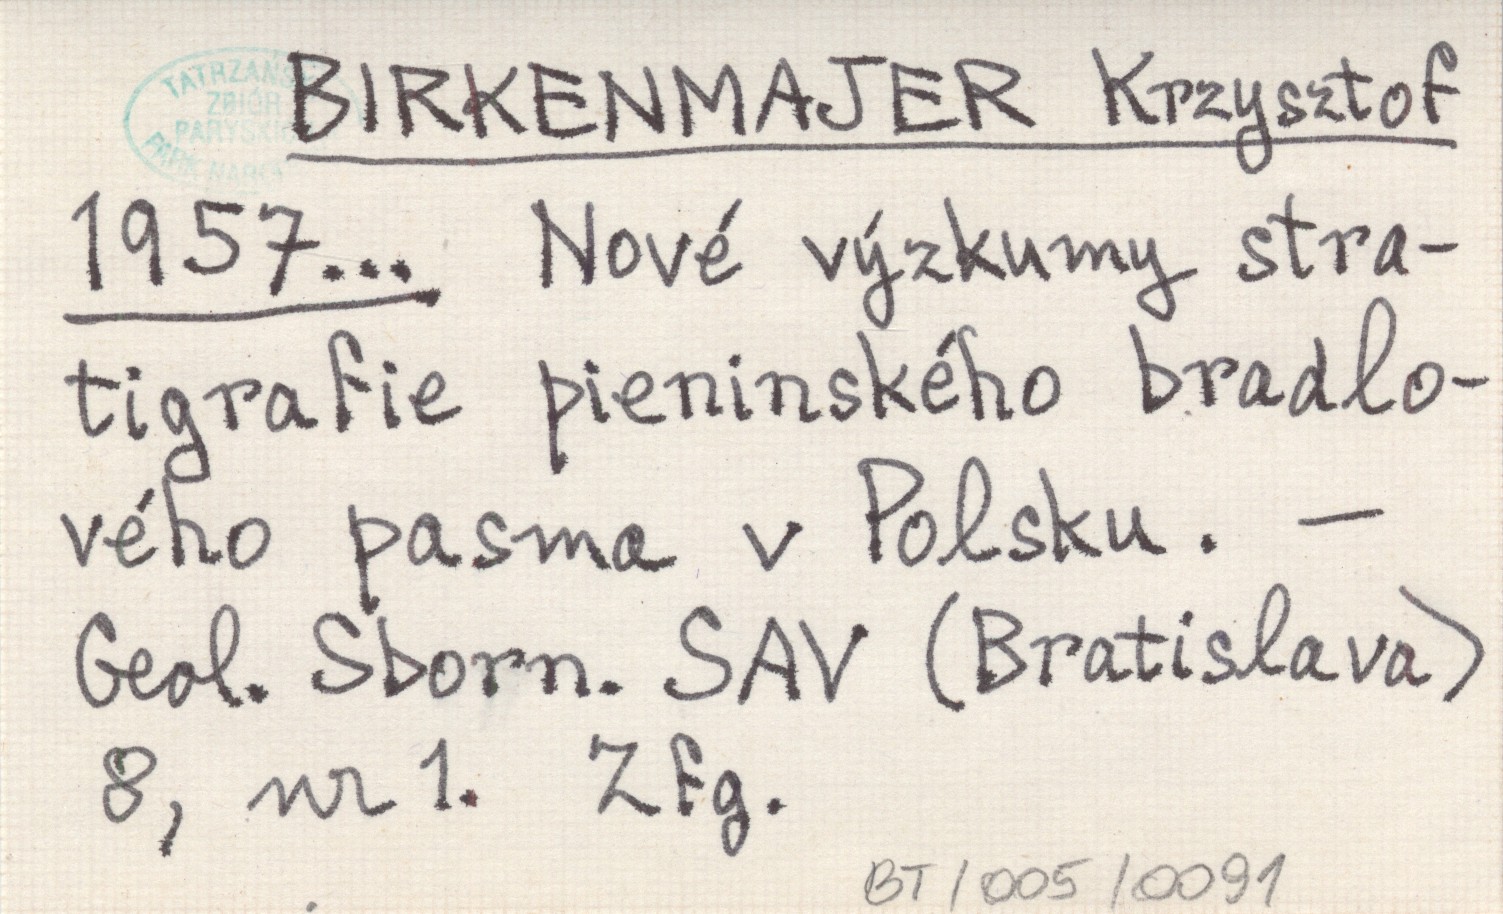 TATRZAŃSKI
ZBIÓR
PARYSKICH
PARK NARO
BIRKENMAJER Krzysztof
1957... Nové výzkumy stra-
tigrafie pieninského bradlo-
vého pasma v Polsku. —
Geol. Sborn. SAV (Bratislava)
8, nr 1. Z fg.
BT/005/0091